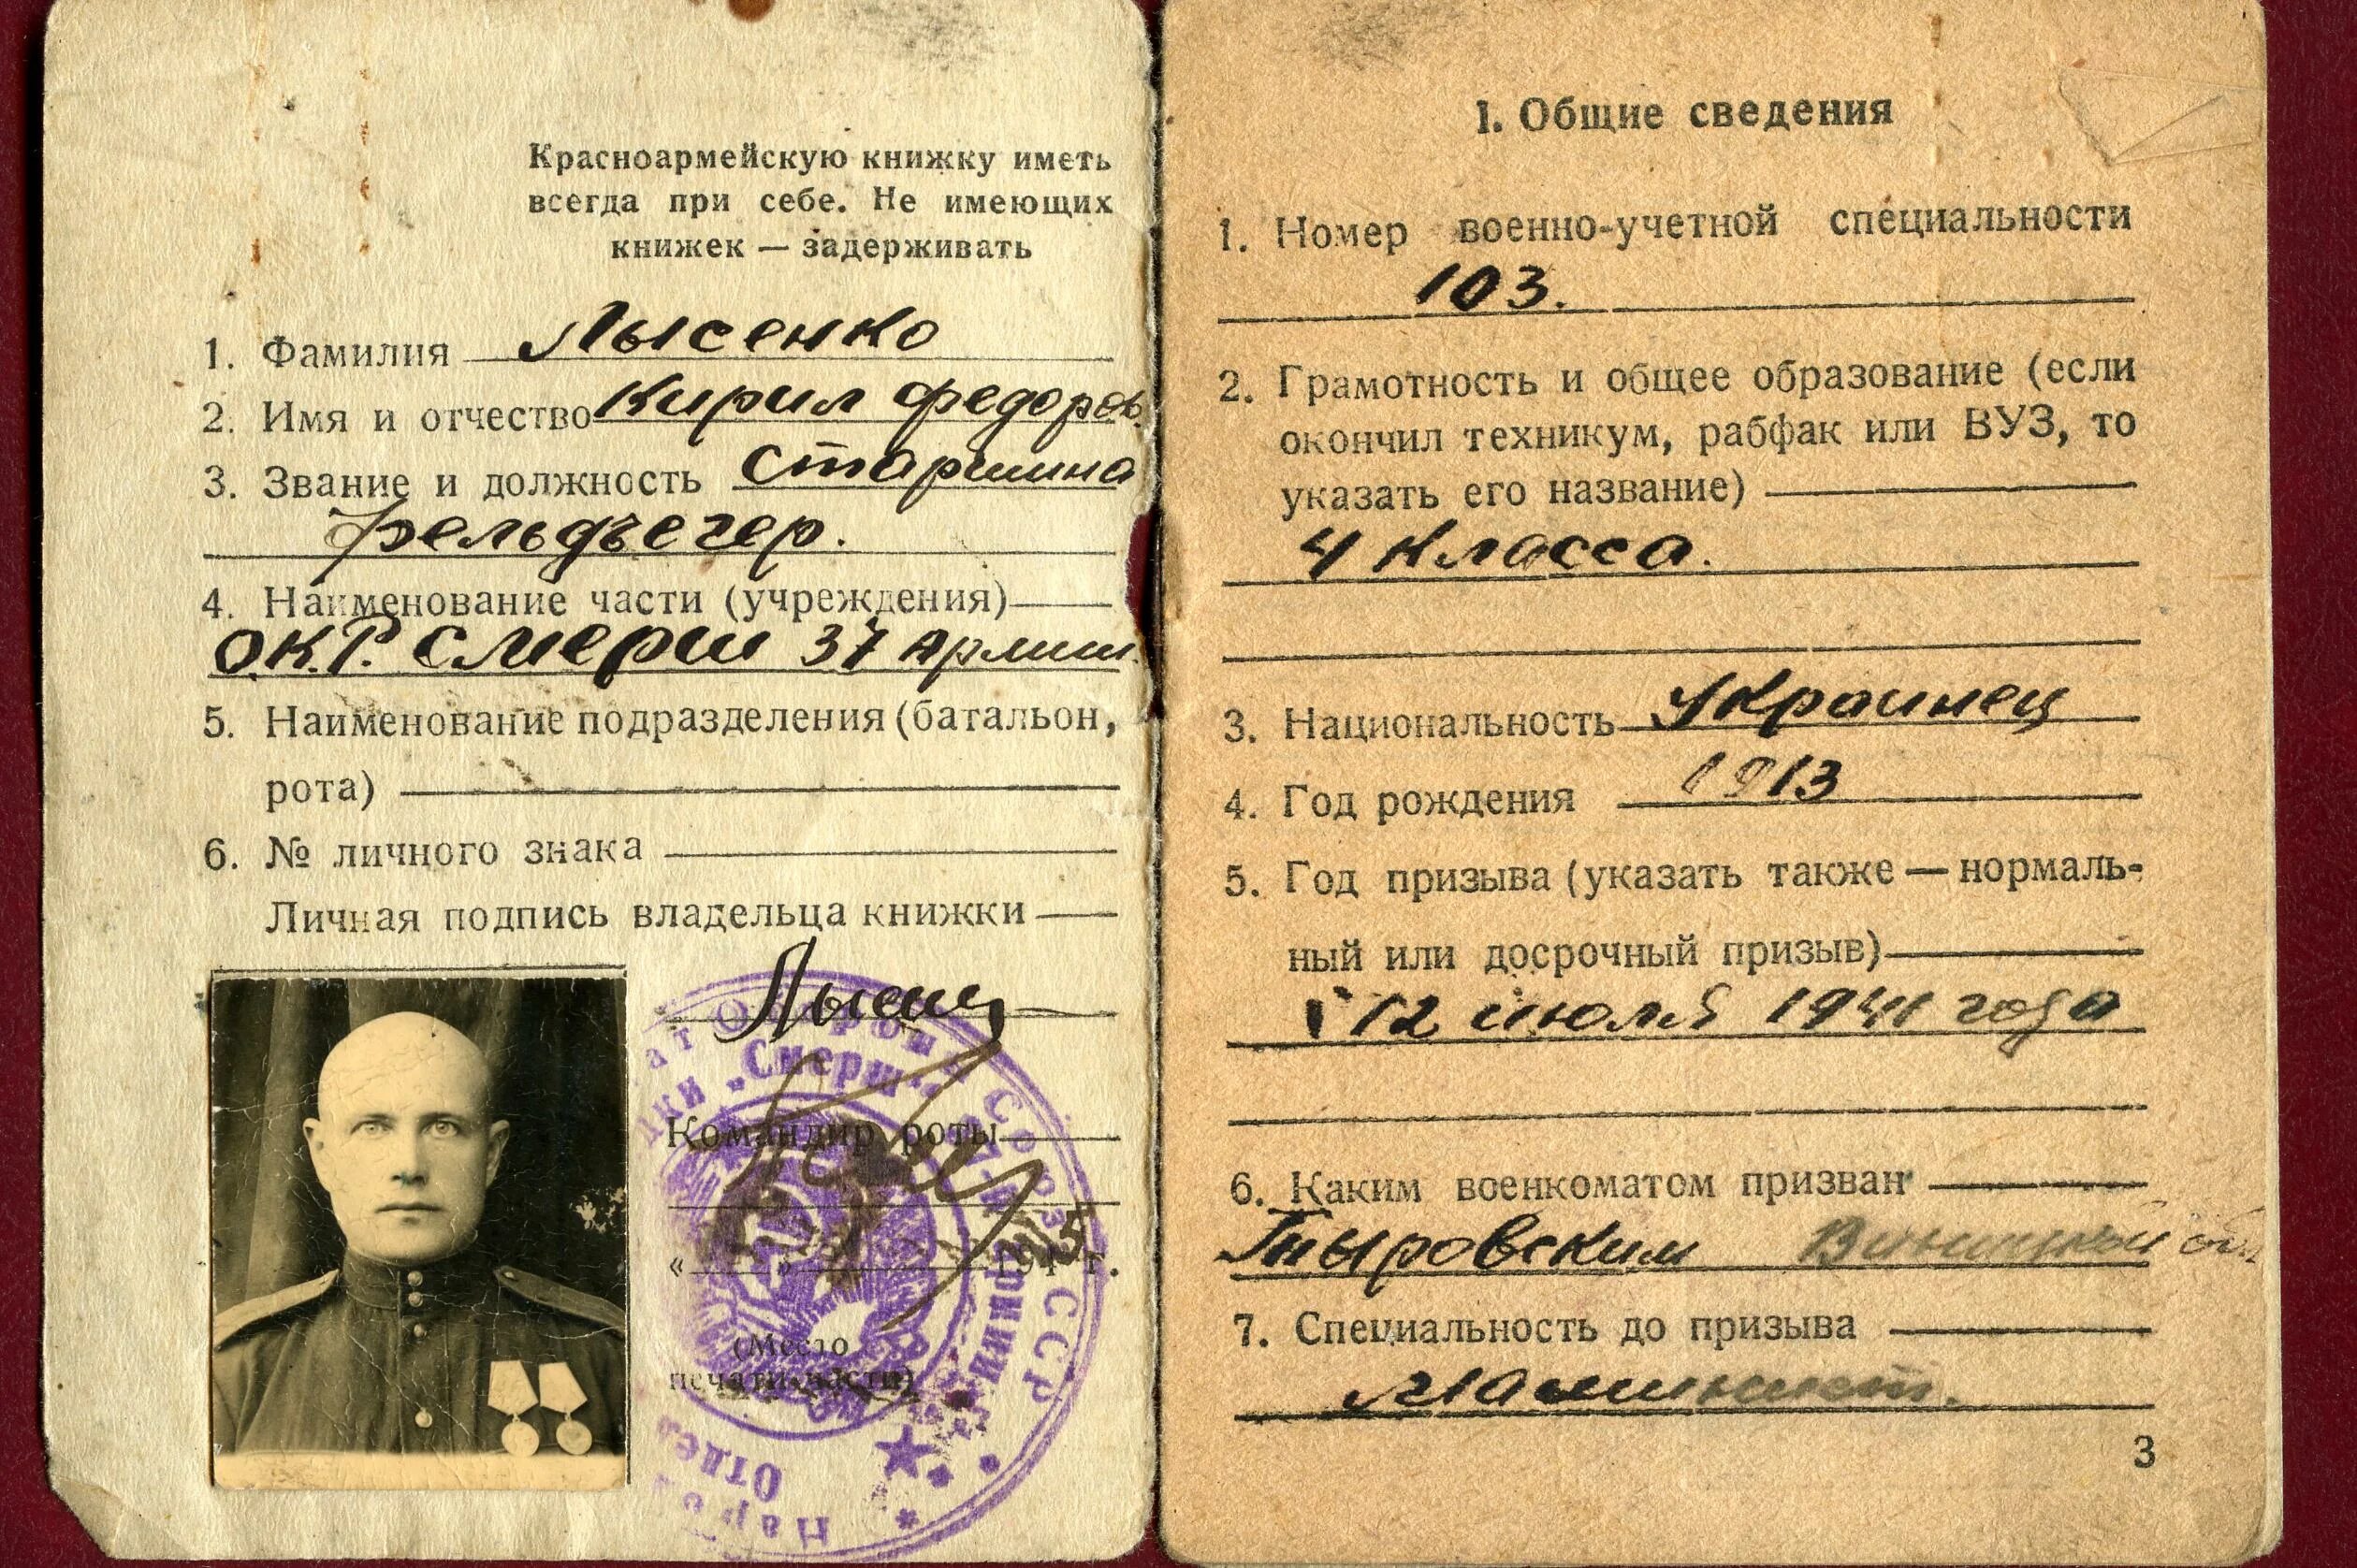 Красноармейскую книжку иметь
всегда при себе. Не имеющих
книжек — задерживать
1. Фамилия Лысенко
2. Имя и отчество Кирил Федоров.
3. Звание и должность Старшина
фельдъегер.
4. Наименование части (учреждения)
О.К.Р. Смерш 37 Армии.
5. Наименование подразделения (батальон,
рота)
6. № личного знака
Личная подпись владельца книжки
Командир роты
" " 1945 г.
(Место
печати части)
"Смерш"
Отдел
СССР
1. Общие сведения
1. Номер военно-учетной специальности
103.
2. Грамотность и общее образование (если
окончил техникум, рабфак или ВУЗ, то
указать его название)
4 класса.
3. Национальность Украинец
4. Год рождения 1913
5. Год призыва (указать также — нормаль-
ный или досрочный призыв)
12 июля 1941 года
6. Каким военкоматом призван
7. Специальность до призыва
Машинист.
3